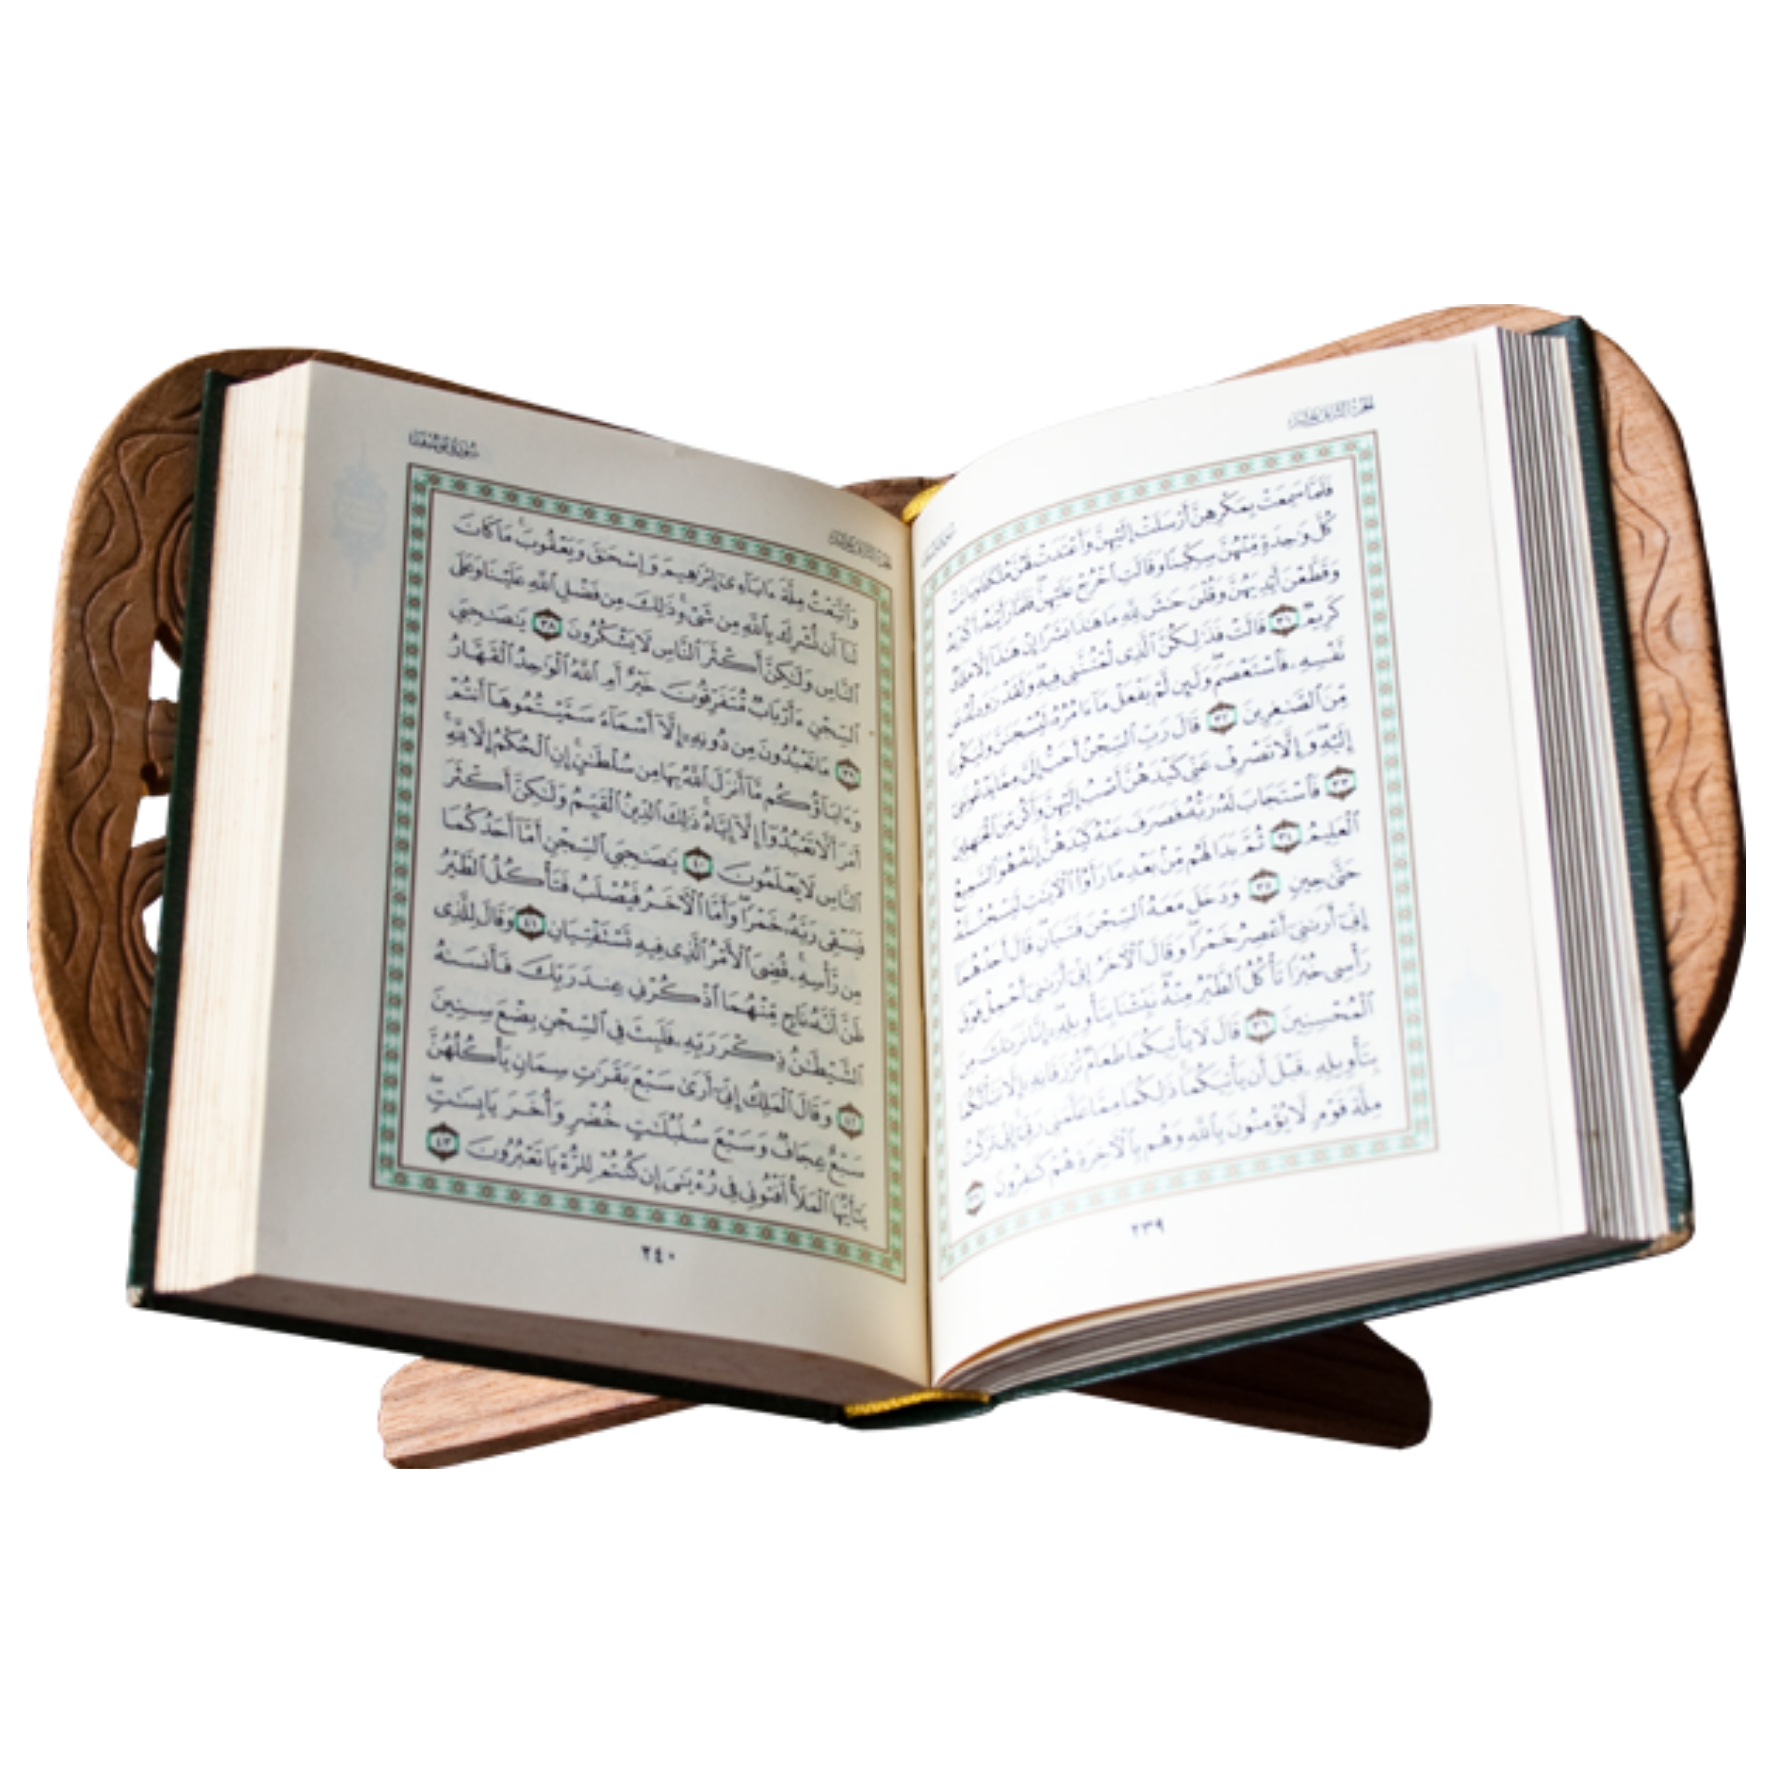 الجزء الثاني عشر
سورة يوسف
فَلَمَّا سَمِعَتْ بِمَكْرِهِنَّ أَرْسَلَتْ إِلَيْهِنَّ وَأَعْتَدَتْ لَهُنَّ مُتَّكَـًٔا وَءَاتَتْ
كُلَّ وَٰحِدَةٍ مِّنْهُنَّ سِكِّينًا وَقَالَتِ ٱخْرُجْ عَلَيْهِنَّ فَلَمَّا رَأَيْنَهُۥٓ أَكْبَرْنَهُۥ
وَقَطَّعْنَ أَيْدِيَهُنَّ وَقُلْنَ حَـٰشَ لِلَّهِ مَا هَـٰذَا بَشَرًا إِنْ هَـٰذَآ إِلَّا مَلَكٌ
كَرِيمٌ ٣١ قَالَتْ فَذَٰلِكُنَّ ٱلَّذِى لُمْتُنَّنِى فِيهِ وَلَقَدْ رَٰوَدتُّهُۥ عَن
نَّفْسِهِۦ فَٱسْتَعْصَمَ وَلَئِن لَّمْ يَفْعَلْ مَآ ءَامُرُهُۥ لَيُسْجَنَنَّ وَلَيَكُونًا
مِّنَ ٱلصَّـٰغِرِينَ ٣٢ قَالَ رَبِّ ٱلسِّجْنُ أَحَبُّ إِلَىَّ مِمَّا يَدْعُونَنِىٓ
إِلَيْهِ وَإِلَّا تَصْرِفْ عَنِّى كَيْدَهُنَّ أَصْبُ إِلَيْهِنَّ وَأَكُن مِّنَ ٱلْجَـٰهِلِينَ
٣٣ فَٱسْتَجَابَ لَهُۥ رَبُّهُۥ فَصَرَفَ عَنْهُ كَيْدَهُنَّ إِنَّهُۥ هُوَ ٱلسَّمِيعُ
ٱلْعَلِيمُ ٣٤ ثُمَّ بَدَا لَهُم مِّنۢ بَعْدِ مَا رَأَوُا۟ ٱلْـَٔايَـٰتِ لَيَسْجُنُنَّهُۥ
حَتَّىٰ حِينٍ ٣٥ وَدَخَلَ مَعَهُ ٱلسِّجْنَ فَتَيَانِ قَالَ أَحَدُهُمَآ
إِنِّىٓ أَرَىٰنِىٓ أَعْصِرُ خَمْرًا وَقَالَ ٱلْـَٔاخَرُ إِنِّىٓ أَرَىٰنِىٓ أَحْمِلُ فَوْقَ
رَأْسِى خُبْزًا تَأْكُلُ ٱلطَّيْرُ مِنْهُ نَبِّئْنَا بِتَأْوِيلِهِۦٓ إِنَّا نَرَىٰكَ مِنَ
ٱلْمُحْسِنِينَ ٣٦ قَالَ لَا يَأْتِيكُمَا طَعَامٌ تُرْزَقَانِهِۦٓ إِلَّا نَبَّأْتُكُمَا
بِتَأْوِيلِهِۦ قَبْلَ أَن يَأْتِيَكُمَا ذَٰلِكُمَا مِمَّا عَلَّمَنِى رَبِّىٓ إِنِّى تَرَكْتُ
مِلَّةَ قَوْمٍ لَّا يُؤْمِنُونَ بِٱللَّهِ وَهُم بِٱلْـَٔاخِرَةِ هُمْ كَـٰفِرُونَ ٣٧
٢٣٩
الجزء الثاني عشر
سورة يوسف
وَٱتَّبَعْتُ مِلَّةَ ءَابَآءِىٓ إِبْرَٰهِيمَ وَإِسْحَـٰقَ وَيَعْقُوبَ مَا كَانَ
لَنَآ أَن نُّشْرِكَ بِٱللَّهِ مِن شَىْءٍ ذَٰلِكَ مِن فَضْلِ ٱللَّهِ عَلَيْنَا وَعَلَى
ٱلنَّاسِ وَلَـٰكِنَّ أَكْثَرَ ٱلنَّاسِ لَا يَشْكُرُونَ ٣٨ يَـٰصَـٰحِبَىِ
ٱلسِّجْنِ ءَأَرْبَابٌ مُّتَفَرِّقُونَ خَيْرٌ أَمِ ٱللَّهُ ٱلْوَٰحِدُ ٱلْقَهَّارُ
٣٩ مَا تَعْبُدُونَ مِن دُونِهِۦٓ إِلَّآ أَسْمَآءً سَمَّيْتُمُوهَآ أَنتُمْ
وَءَابَآؤُكُم مَّآ أَنزَلَ ٱللَّهُ بِهَا مِن سُلْطَـٰنٍ إِنِ ٱلْحُكْمُ إِلَّا لِلَّهِ
أَمَرَ أَلَّا تَعْبُدُوٓا۟ إِلَّآ إِيَّاهُ ذَٰلِكَ ٱلدِّينُ ٱلْقَيِّمُ وَلَـٰكِنَّ أَكْثَرَ
ٱلنَّاسِ لَا يَعْلَمُونَ ٤٠ يَـٰصَـٰحِبَىِ ٱلسِّجْنِ أَمَّآ أَحَدُكُمَا
فَيَسْقِى رَبَّهُۥ خَمْرًا وَأَمَّا ٱلْـَٔاخَرُ فَيُصْلَبُ فَتَأْكُلُ ٱلطَّيْرُ
مِن رَّأْسِهِۦ قُضِىَ ٱلْأَمْرُ ٱلَّذِى فِيهِ تَسْتَفْتِيَانِ ٤١ وَقَالَ لِلَّذِى
ظَنَّ أَنَّهُۥ نَاجٍ مِّنْهُمَا ٱذْكُرْنِى عِندَ رَبِّكَ فَأَنسَىٰهُ
ٱلشَّيْطَـٰنُ ذِكْرَ رَبِّهِۦ فَلَبِثَ فِى ٱلسِّجْنِ بِضْعَ سِنِينَ
٤٢ وَقَالَ ٱلْمَلِكُ إِنِّىٓ أَرَىٰ سَبْعَ بَقَرَٰتٍ سِمَانٍ يَأْكُلُهُنَّ
سَبْعٌ عِجَافٌ وَسَبْعَ سُنۢبُلَـٰتٍ خُضْرٍ وَأُخَرَ يَابِسَـٰتٍ
يَـٰٓأَيُّهَا ٱلْمَلَأُ أَفْتُونِى فِى رُءْيَـٰىَ إِن كُنتُمْ لِلرُّءْيَا تَعْبُرُونَ ٤٣
٢٤٠